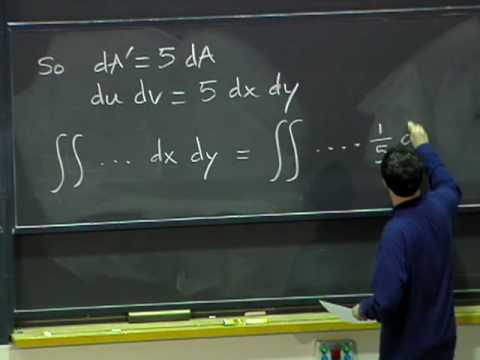 So dA' = 5 dA
du dv = 5 dx dy
∬ ... dx dy = ∬ .... 1/5 d